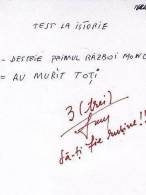 TEST LA ISTORIE
- DESPRE PRIMUL RĂZBOI MOND
= AU MURIT TOȚI
3 (trei)
Să-ți fie rușine!!